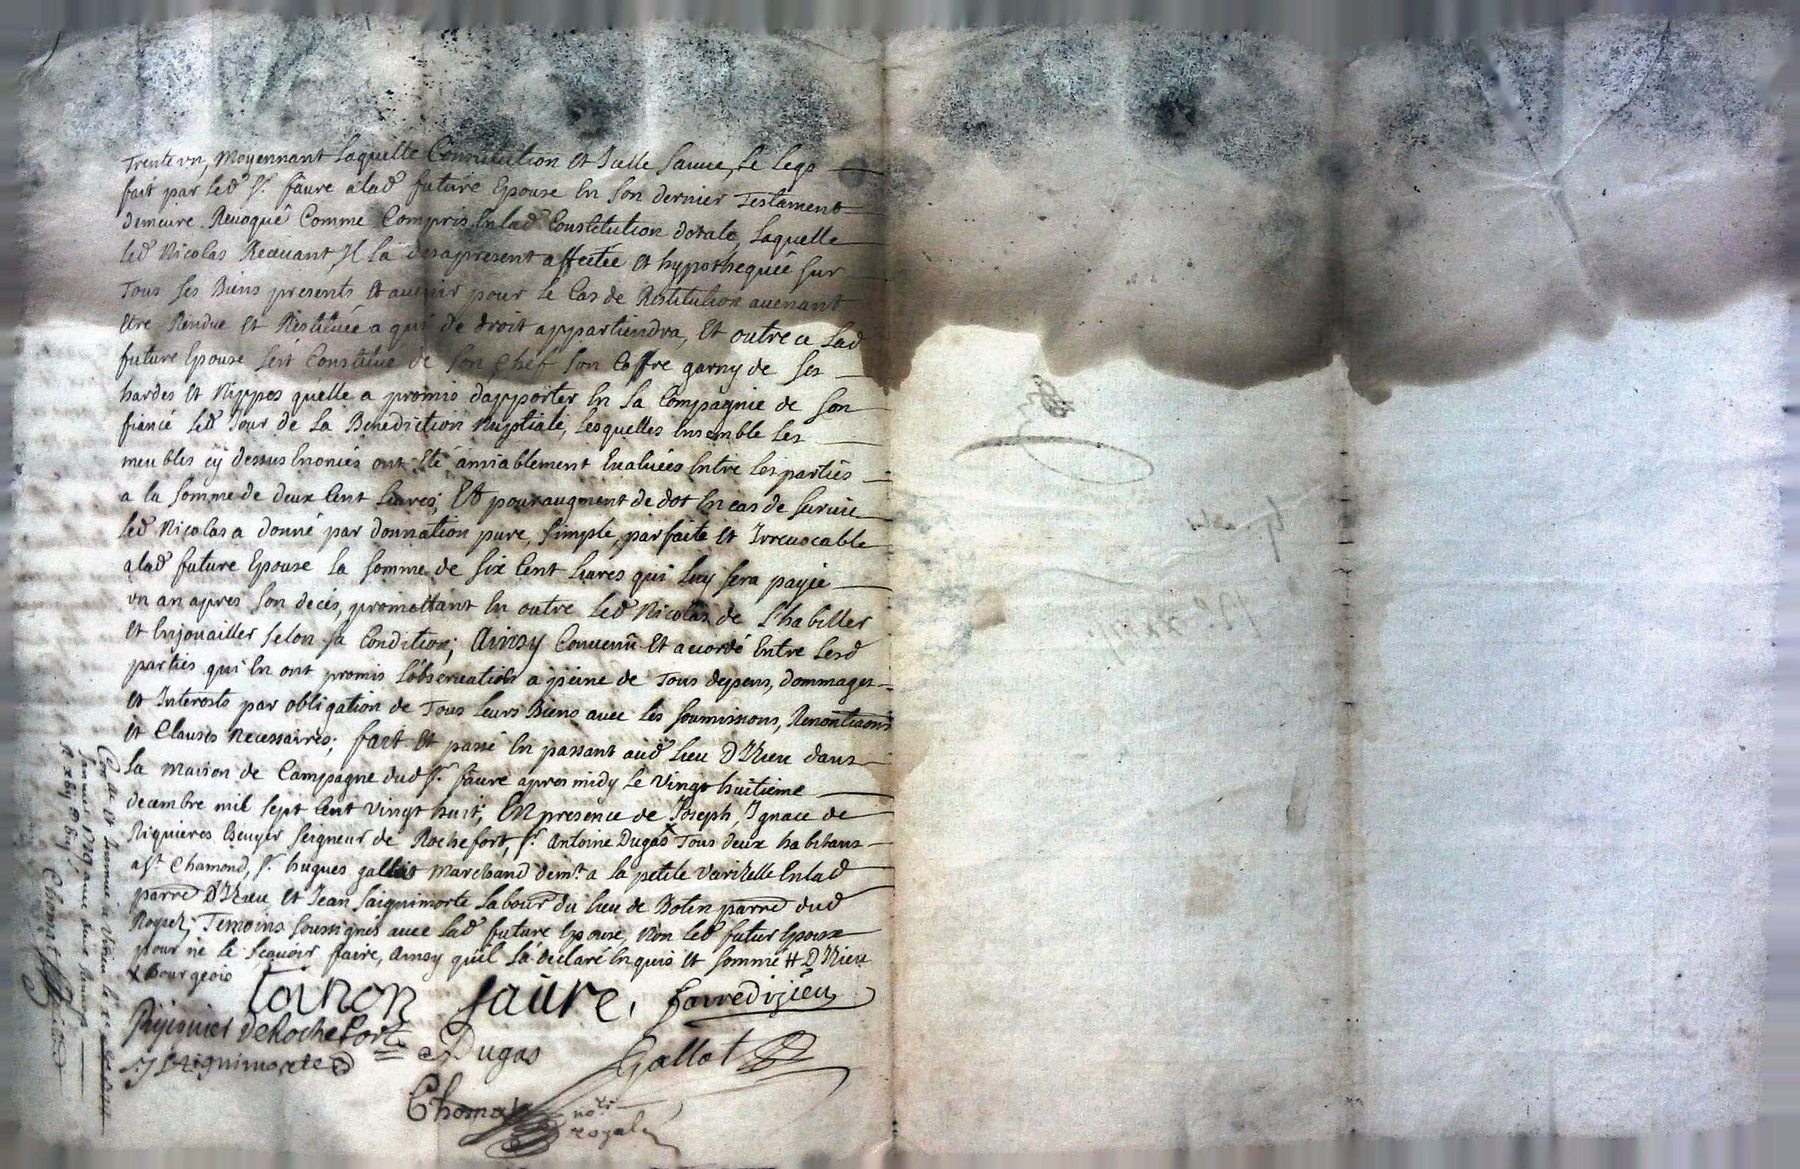 Trente un, Moyennant laquelle Constitution et Icelle sauve, le lega
fait par led Sr. faure a lad future Epouse En Son dernier Testament
demeure Revoqué Comme Compris En lad Constitution dotale, laquelle
led Nicolas Receuant Il la desapresent affectée et hypothequée sur
Tous ses Biens presents et auenir pour le Cas de Restitution auenant
Etre Rendue et Restituée a qui de droit appartiendra, Et outre ce Lad
future Epouse sest Constitué de son Chef son Coffre garny de ses
hardes et Nippes quelle a promis dapporter En la Compagnie de son
fiancé led Jour de la Benediction Nuptiale, lesquelles Ensemble les
meubles cy dessus Enoncés ont Eté amiablement Evaluées Entre les parties
a la somme de deux Cent liures; Et pour augment de dot En cas de suruie
led Nicolas a donné par donnation pure, simple, parfaite et Irreuocable
a lad future Epouse la somme de six Cent liures qui luy sera payée
un an apres son decés, promettant En outre led Nicolas de L'habiller
et Enjouailler selon sa Condition; Ainsy Conuenu Et accordé Entre lesd
parties qui En ont promis L'obseruation a peine de Tous depens, dommages
et Interests par obligation de Tous leurs Biens auec les soumissions, Renontiaons
et Clauses Necessaires; fait Et passé En passant aud Lieu D'Izieu dans
la maison de Campagne dud Sr. faure apres midy le Vingt huitieme
decembre mil sept Cent Vingt huit; En presence de Joseph, Ignace de
Riquieres Ecuyer seigneur de Rochefort, Sr. Antoine Dugas x Tous deux habitans
a St. Chamond, Sr. hugues gallot Marchand demt. a la petite Varizelle En lad
parre D'Izieu, et Jean saignimorte Labour du lieu de Botin parre dud
Temoins soussignés auec lad future Epouse, Non led futur Epoux
pour ne le sçauoir faire, Ainsy quil l'a declaré Enquis et sommé # D'Izieu
x Bourgeois
Toinon faure. faure dizieu
de Rochefort
Dugas Gallot
Saignimorte
Chomat nore
royal
Con lé et Insinué a
Januier 1729,
Chomat